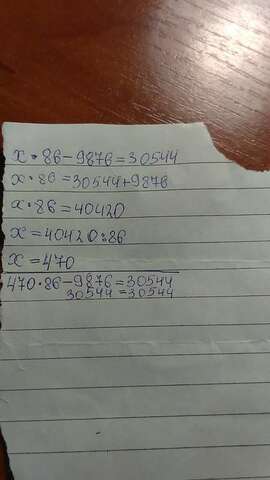 x·86-9876=30544
x·86=30544+9876
x·86=40420
x=40420:86
x=470
470·86-9876=30544
30544=30544